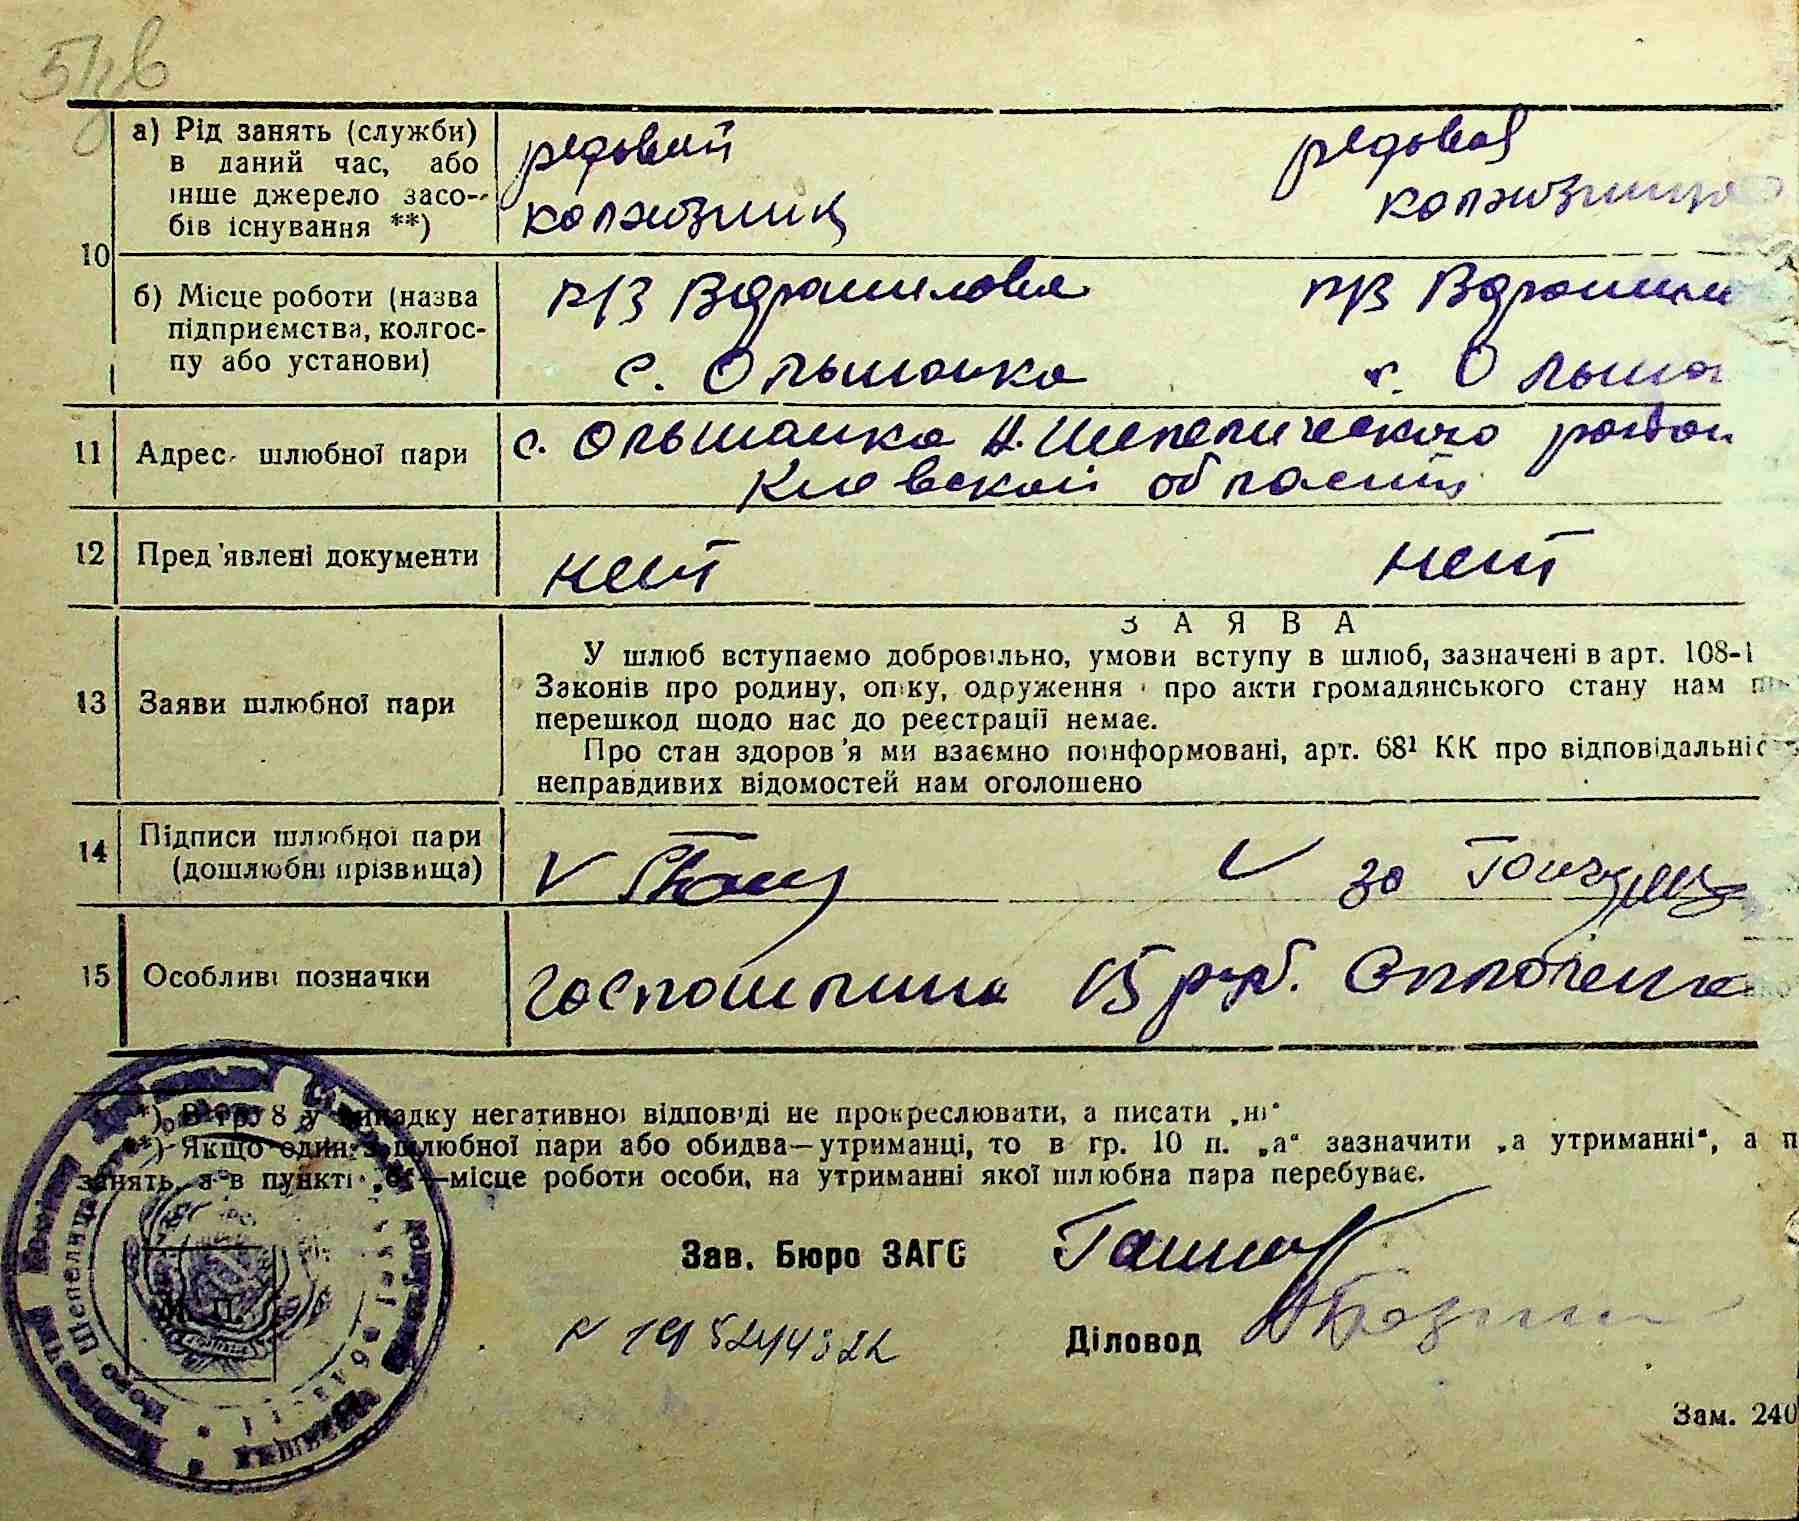 а) Рід занять (служби)
в даний час, або
інше джерело засо-
бів існування **)
редовий
колхозник
редовая
колхозница
10
б) Місце роботи (назва
підприємства, колгос-
пу або установи)
к/з Ворошилова
с. Ольшанка
к/з Ворошил
с. Ольша
11
Адрес шлюбної пари
с. Ольшанка Н. Шепелического район
Киевской области
12
Пред'явлені документи
нет
нет
13
Заяви шлюбної пари
ЗАЯВА
У шлюб вступаємо добровільно, умови вступу в шлюб, зазначені в арт. 108-1
Законів про родину, опіку, одруження і про акти громадянського стану нам
перешкод щодо нас до реєстрації немає.
Про стан здоров'я ми взаємно поінформовані, арт. 68¹ КК про відповідальніс
неправдивих відомостей нам оголошено
14
Підписи шлюбної пари
(дошлюбні прізвища)
V
V за
15
Особливі позначки
госпошлина 15 руб. Оплочена
*) В гр. 8 у випадку негативної відповіді не прокреслювати, а писати „ні"
**) Якщо один з шлюбної пари або обидва—утриманці, то в гр. 10 п. „а" зазначити „а утриманні", а п
занять, а в пункті „б"—місце роботи особи, на утриманні якої шлюбна пара перебуває.
Зав. Бюро ЗАГС
Діловод
Зам. 240